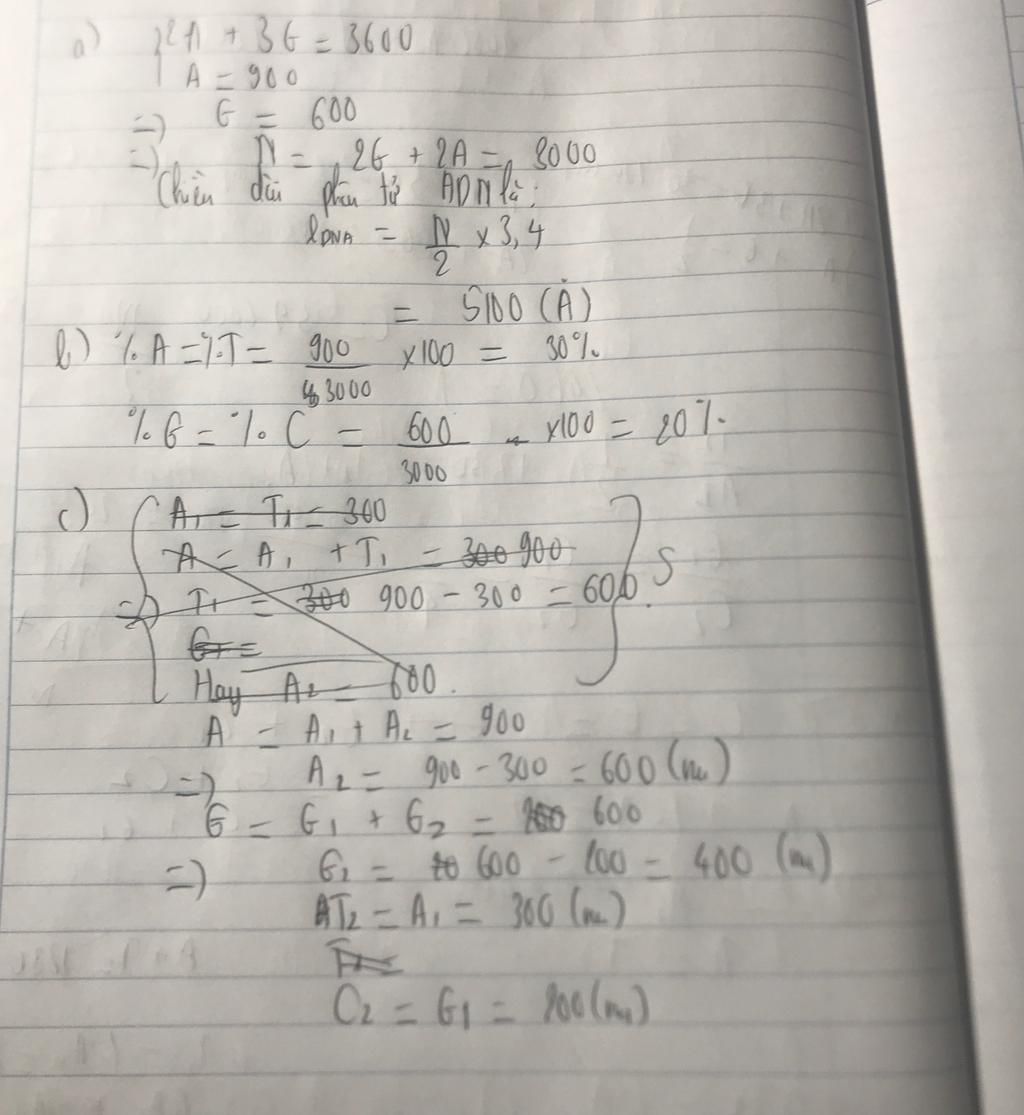 a) { 2A + 3G = 3600
A = 900
=> G = 600
=> N = 2G + 2A = 3000
Chiều dài phân tử ADN là:
lDNA = N/2 x 3,4
= 5100 (Å)
b) % A = % T = 900/3000 x100 = 30%
% G = % C = 600/3000 x100 = 20%
c) A1 = T1 = 300
A = A1 + T1 = 300 900
=> T1 = 300 900 - 300 = 600. S
G =
Hay A2 = 600.
A = A1 + A2 = 900
=> A2 = 900 - 300 = 600 (nu)
G = G1 + G2 = 600
=> G2 = 600 - 200 = 400 (nu)
T2 = A1 = 300 (nu)
C2 = G1 = 200 (nu)